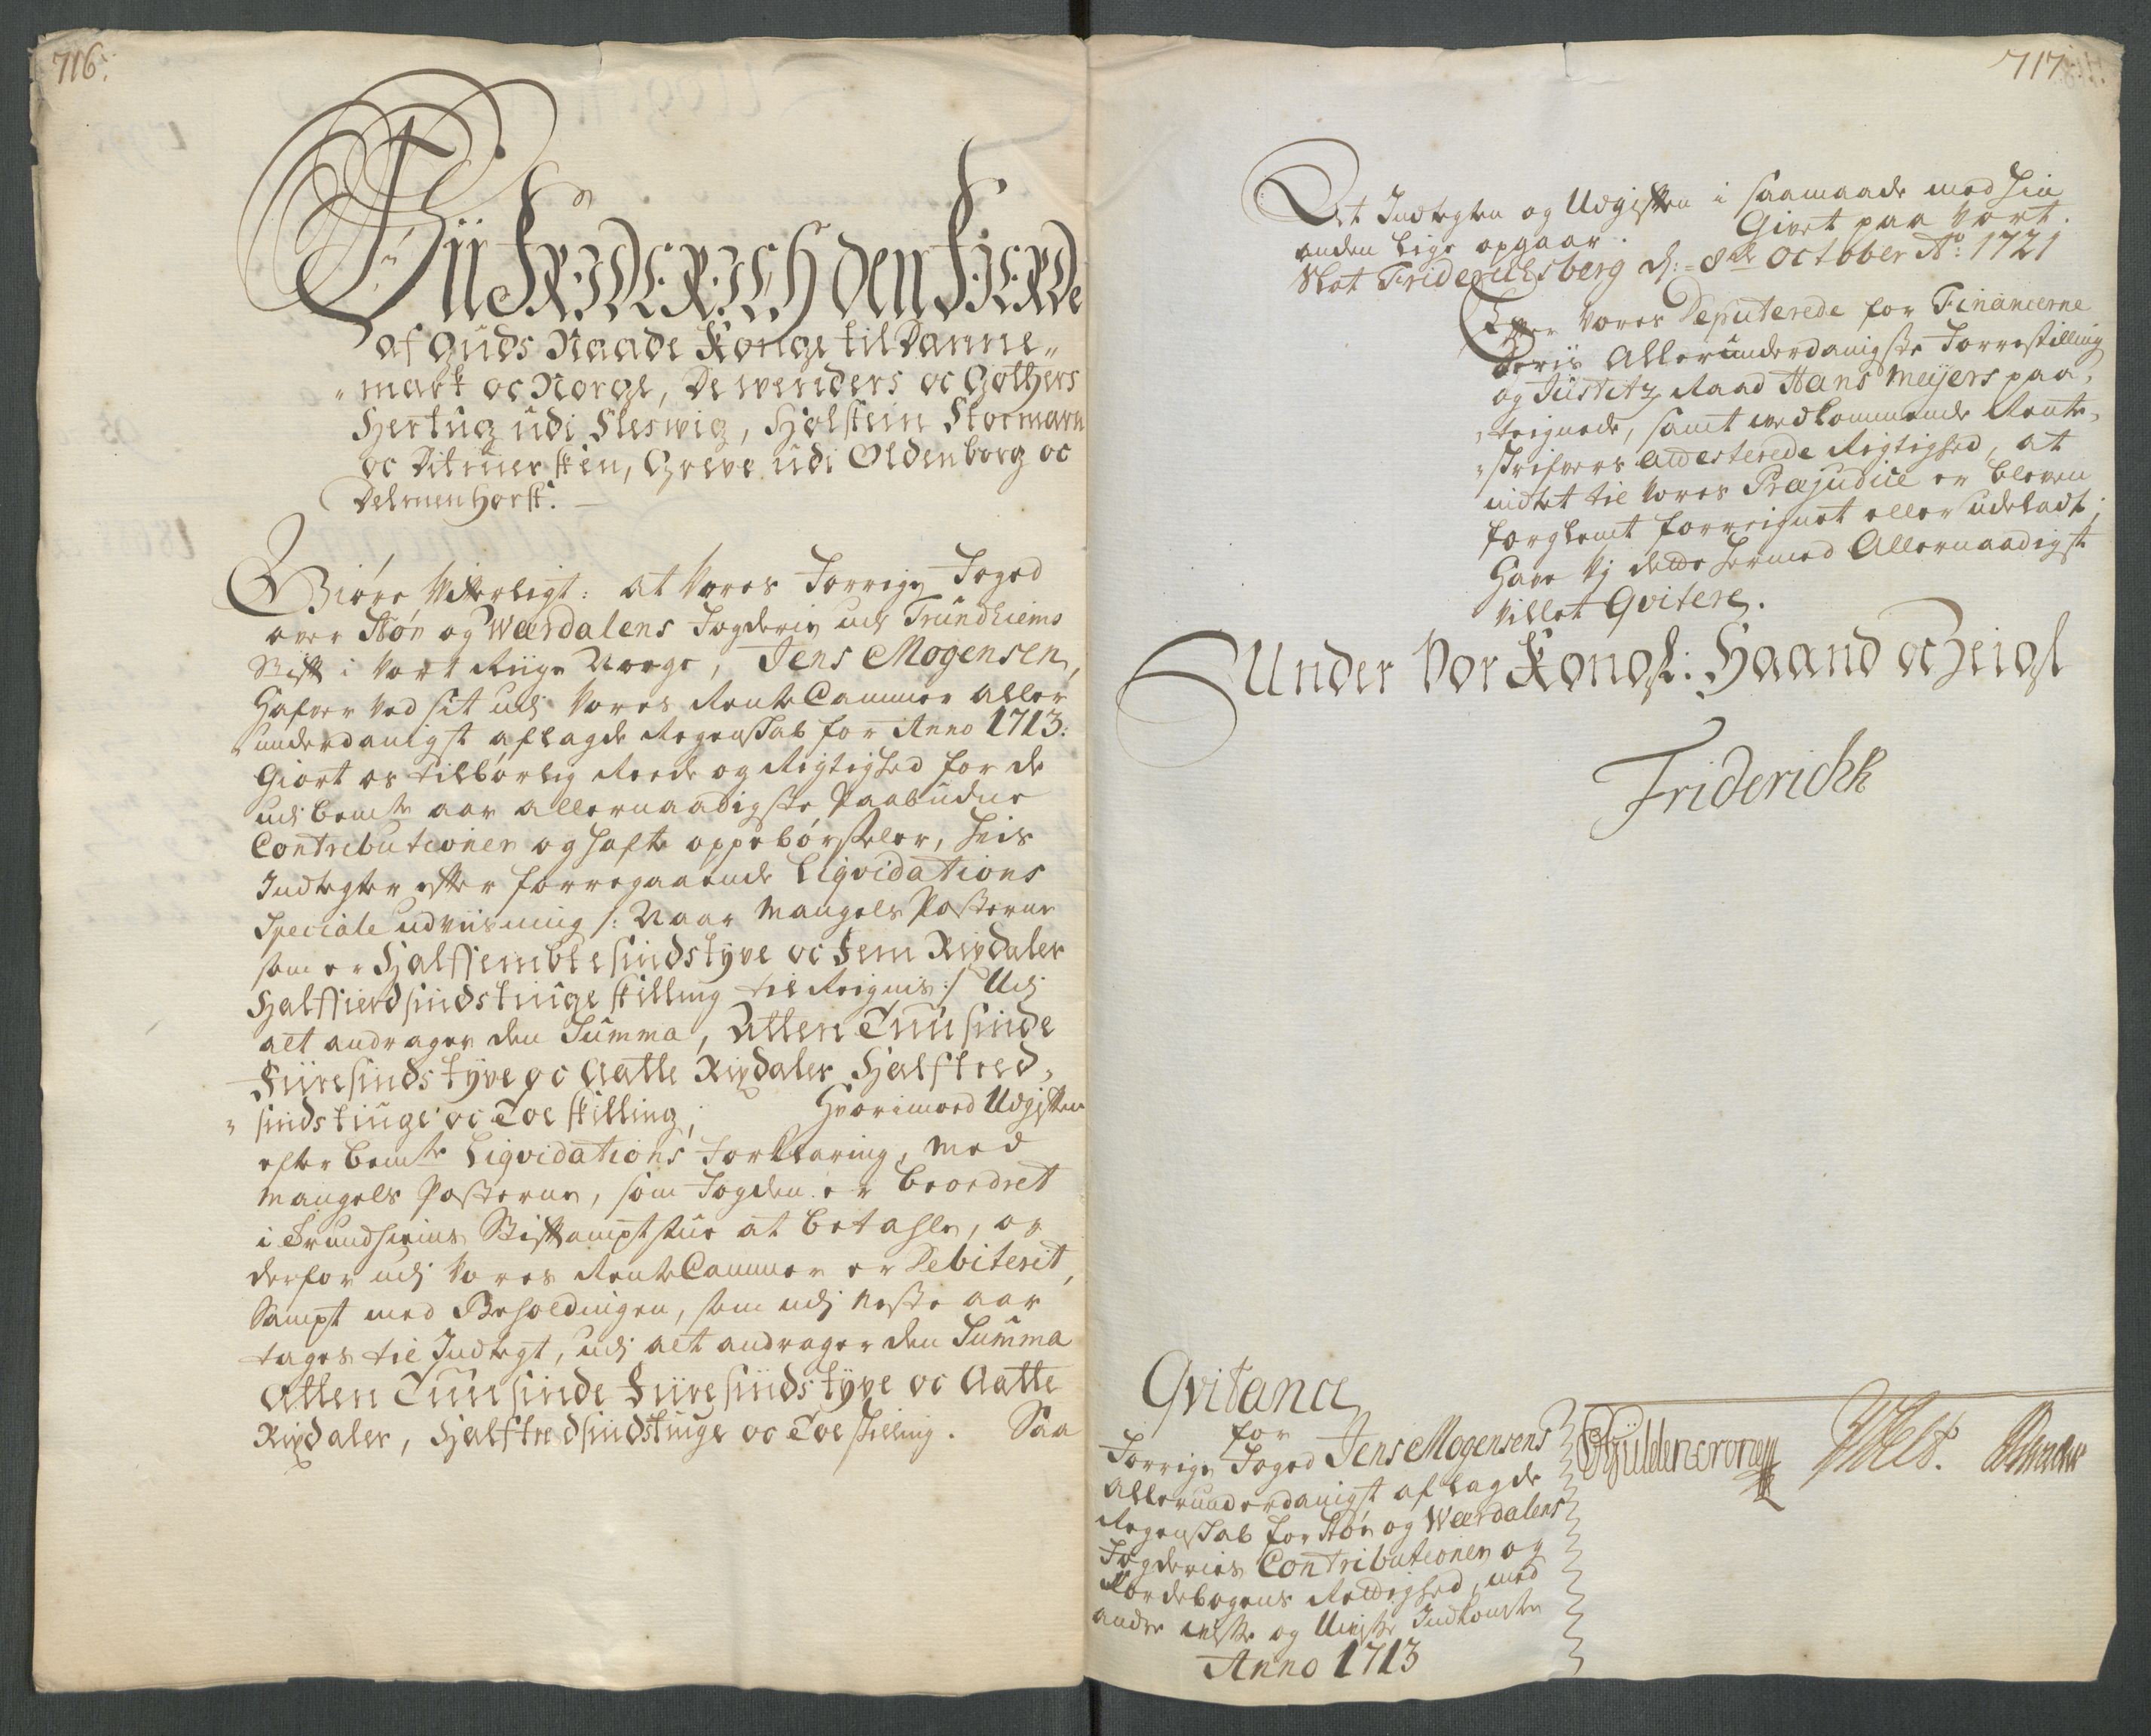 716.
Wii FRIDERICH den FJERDE
af Guds Naade Konge til Danne„
„mark oc Norge, De Wenders oc Gothers
Hertug udi Sleswig, Holstein Stormarn
oc Ditmersken, Greve udi Oldenborg oc
Delmenhorst.
Giøre Vitterligt: at Vores Forrige Foged
over Stør og Wærdalens Fogderie udj Trundhiems
Stift i Vort Riige Norge, Jens Mogensen,
Hafver ved sit udj Vores Rente Cammer aller
underdanigst aflagde Regenskab for Anno 1713:
Giort os tilbørlig Reede og Rigtighed for de
udj bemte aar allernaadigste Paabudne
Contributioner og hafte oppebørseler, hvis
Indtegter efter forregaaende Liqvidations
Speciale udviisning /: Naar Mangels Posterne
som er Halffembtesindstyve oc Fem Rixdaler
Halffierdsindstiuge skilling til Reignis :/ Udj
alt andrager den Summa, Atten Tuusinde
Fiiresindstyve oc Aatte Rixdaler Halftred„
„sindstiuge oc Toe skilling; Hvorimod Udgiften
efter bemte Liqvidations Forklaring, med
Mangels Posterne, som Fogden er beordret
i Trundhiems Stiftamptstue at betahle, og
derfor udj Vores Rente Cammer er Debiterit,
Sampt med Beholdingen, som udj neste aar
tages til Indtegt, udj alt andrager den Summa
Atten Tuusinde Fiiresindstyve oc Aatte
Rixdaler, Halftredsindstiuge oc Toe skilling. Saa
717.
Det Indtegten og Udgiften i saamaade med hin
anden lige opgaar. Givet paa Vort
Slot Friderichsberg d: 8de October Ao: 1721
Efter Vores Deputerede for Financerne
Deris Allerunderdanigste Forrestilling
og Justitz Raad Hans Meijers paa„
„teignede, samt vedkommende Rente„
„skrifvers attesterede Rigtighed, at
intet til Vores Præjudice er bleven
forglemt forreignet eller udeladt;
Have Vj dette hermed Allernaadigst
Villet Qvitere.
Under Vor Kongl: Haand oc Zeigl
Friderich R
Qvitance
for
Forrige Foged Jens Mogensens
Allerunderdanigst aflagde
Regenskab for Stør og Wærdalens
Fogderies Contributioner og
Jordebogens Rettighed, med
andre visse og Uvisse Indkomster
Anno 1713
Gÿldencrone